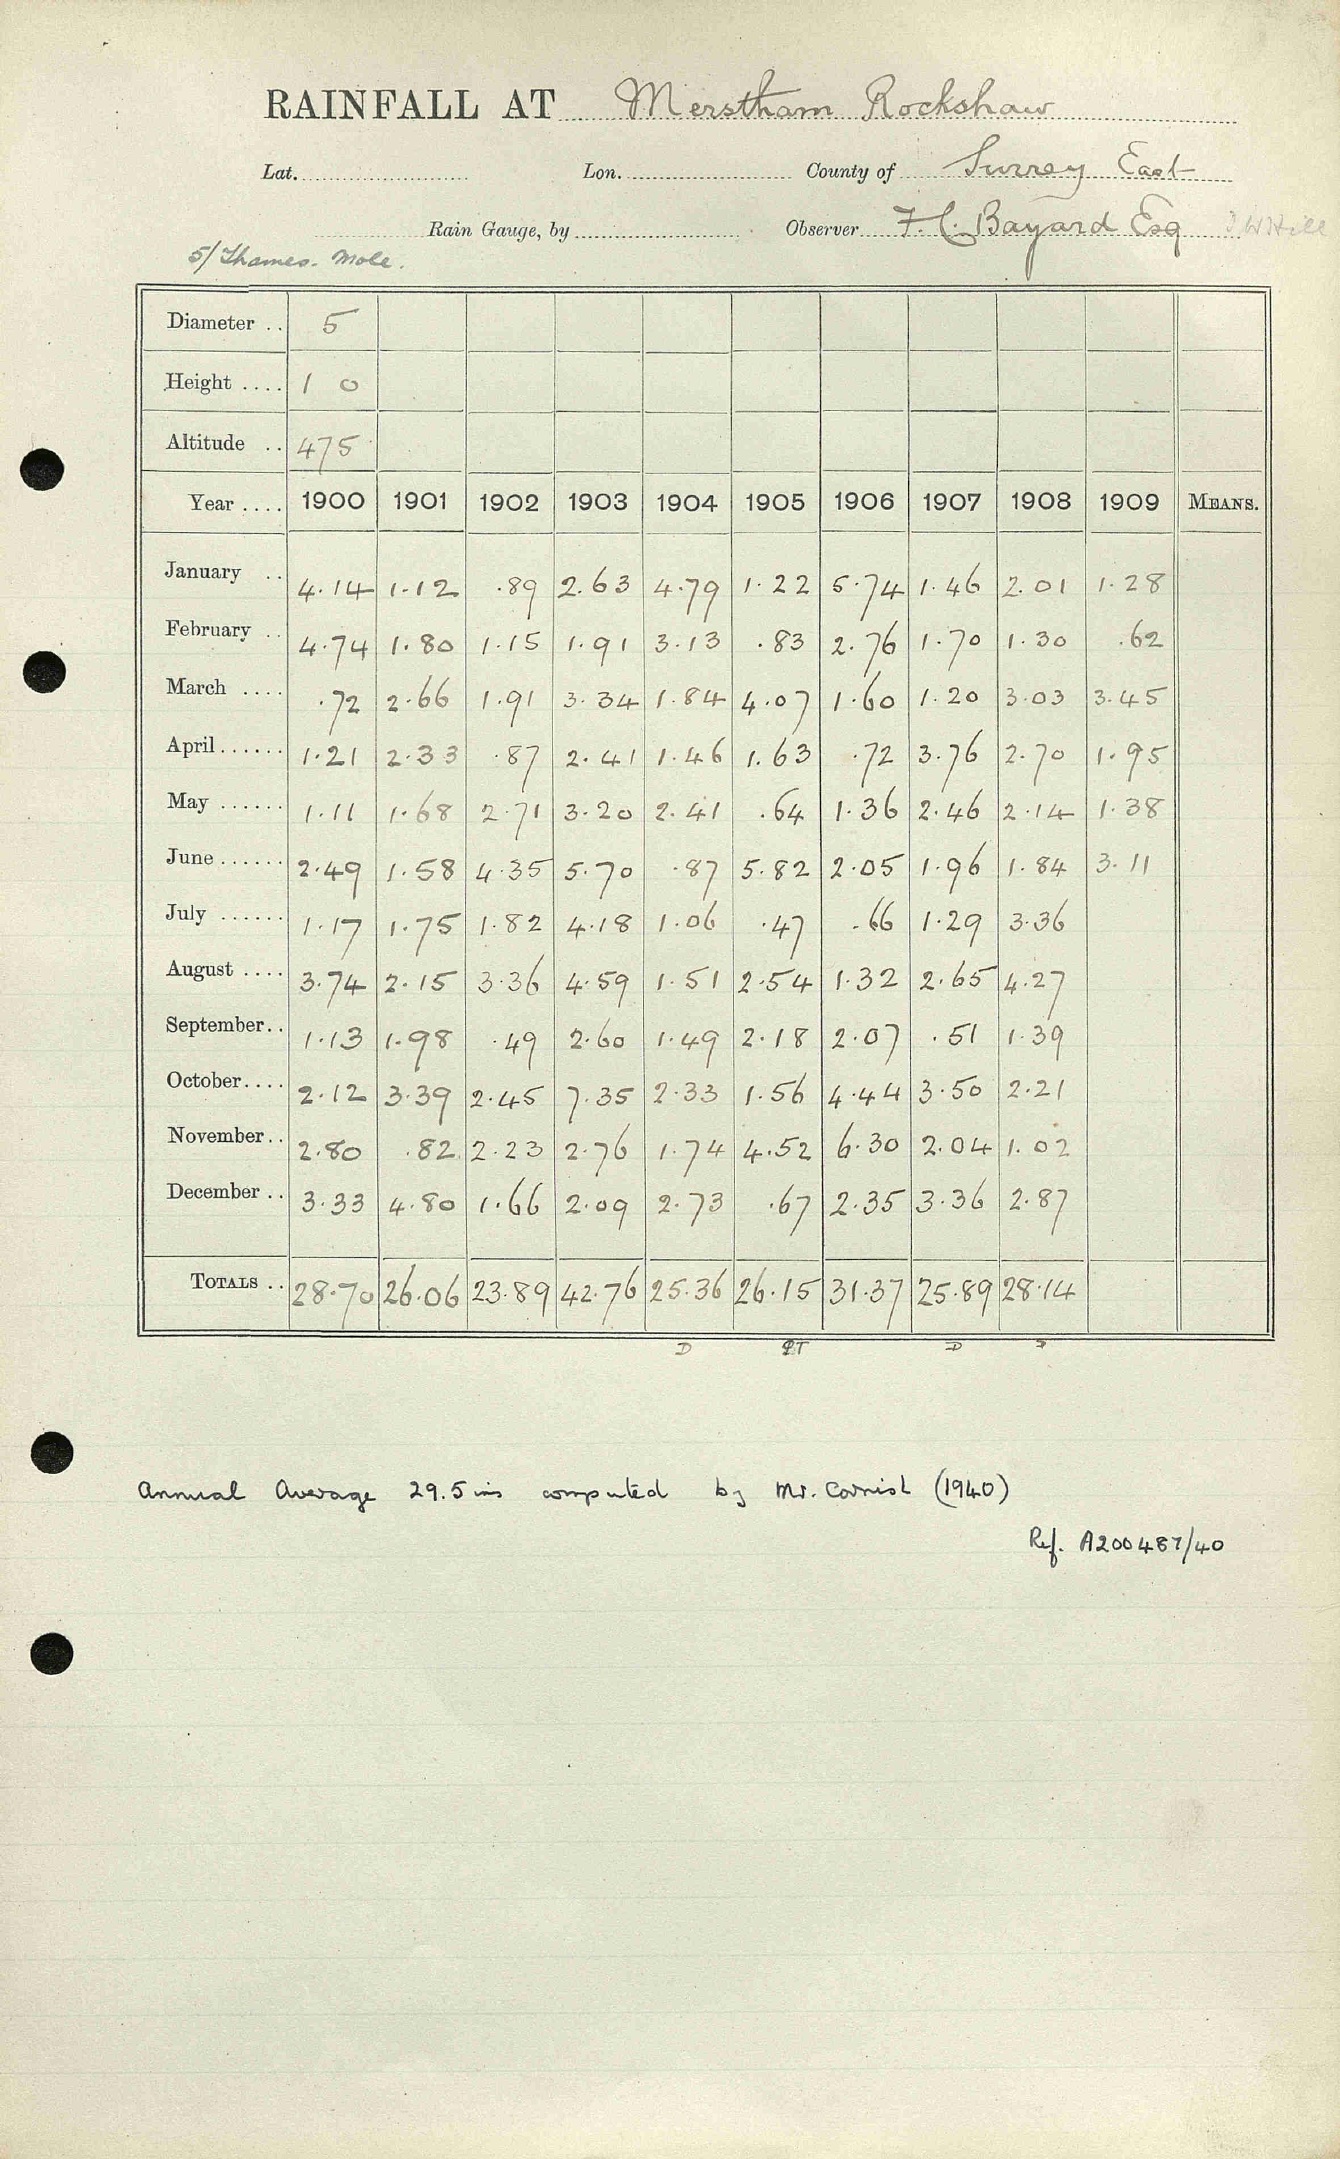 RAINFALL AT Merstham Rockshaw
Lat. Lon. County of Surrey East
Rain Gauge, by Observer F.C. Bayard Esq
5/Thames. Mole.
Diameter .. 5
Height .... 1 0
Altitude .. 475
Year .... 1900 1901 1902 1903 1904 1905 1906 1907 1908 1909 MEANS.
January .. 4.14 1.12 .89 2.63 4.79 1.22 5.74 1.46 2.01 1.28
February .. 4.74 1.80 1.15 1.91 3.13 .83 2.76 1.70 1.30 .62
March .... .72 2.66 1.91 3.34 1.84 4.07 1.60 1.20 3.03 3.45
April ...... 1.21 2.33 .87 2.41 1.46 1.63 .72 3.76 2.70 1.95
May ...... 1.11 1.68 2.71 3.20 2.41 .64 1.36 2.46 2.14 1.38
June ...... 2.49 1.58 4.35 5.70 .87 5.82 2.05 1.96 1.84 3.11
July ...... 1.17 1.75 1.82 4.18 1.06 .47 .66 1.29 3.36
August .... 3.74 2.15 3.36 4.59 1.51 2.54 1.32 2.65 4.27
September.. 1.13 1.98 .49 2.60 1.49 2.18 2.07 .51 1.39
October.... 2.12 3.39 2.45 7.35 2.33 1.56 4.44 3.50 2.21
November.. 2.80 .82 2.23 2.76 1.74 4.52 6.30 2.04 1.02
December .. 3.33 4.80 1.66 2.09 2.73 .67 2.35 3.36 2.87
TOTALS .. 28.70 26.06 23.89 42.76 25.36 26.15 31.37 25.89 28.14
D D
Annual Average 29.5 ins computed by Mr. Cornish (1940)
Ref. A200487/40